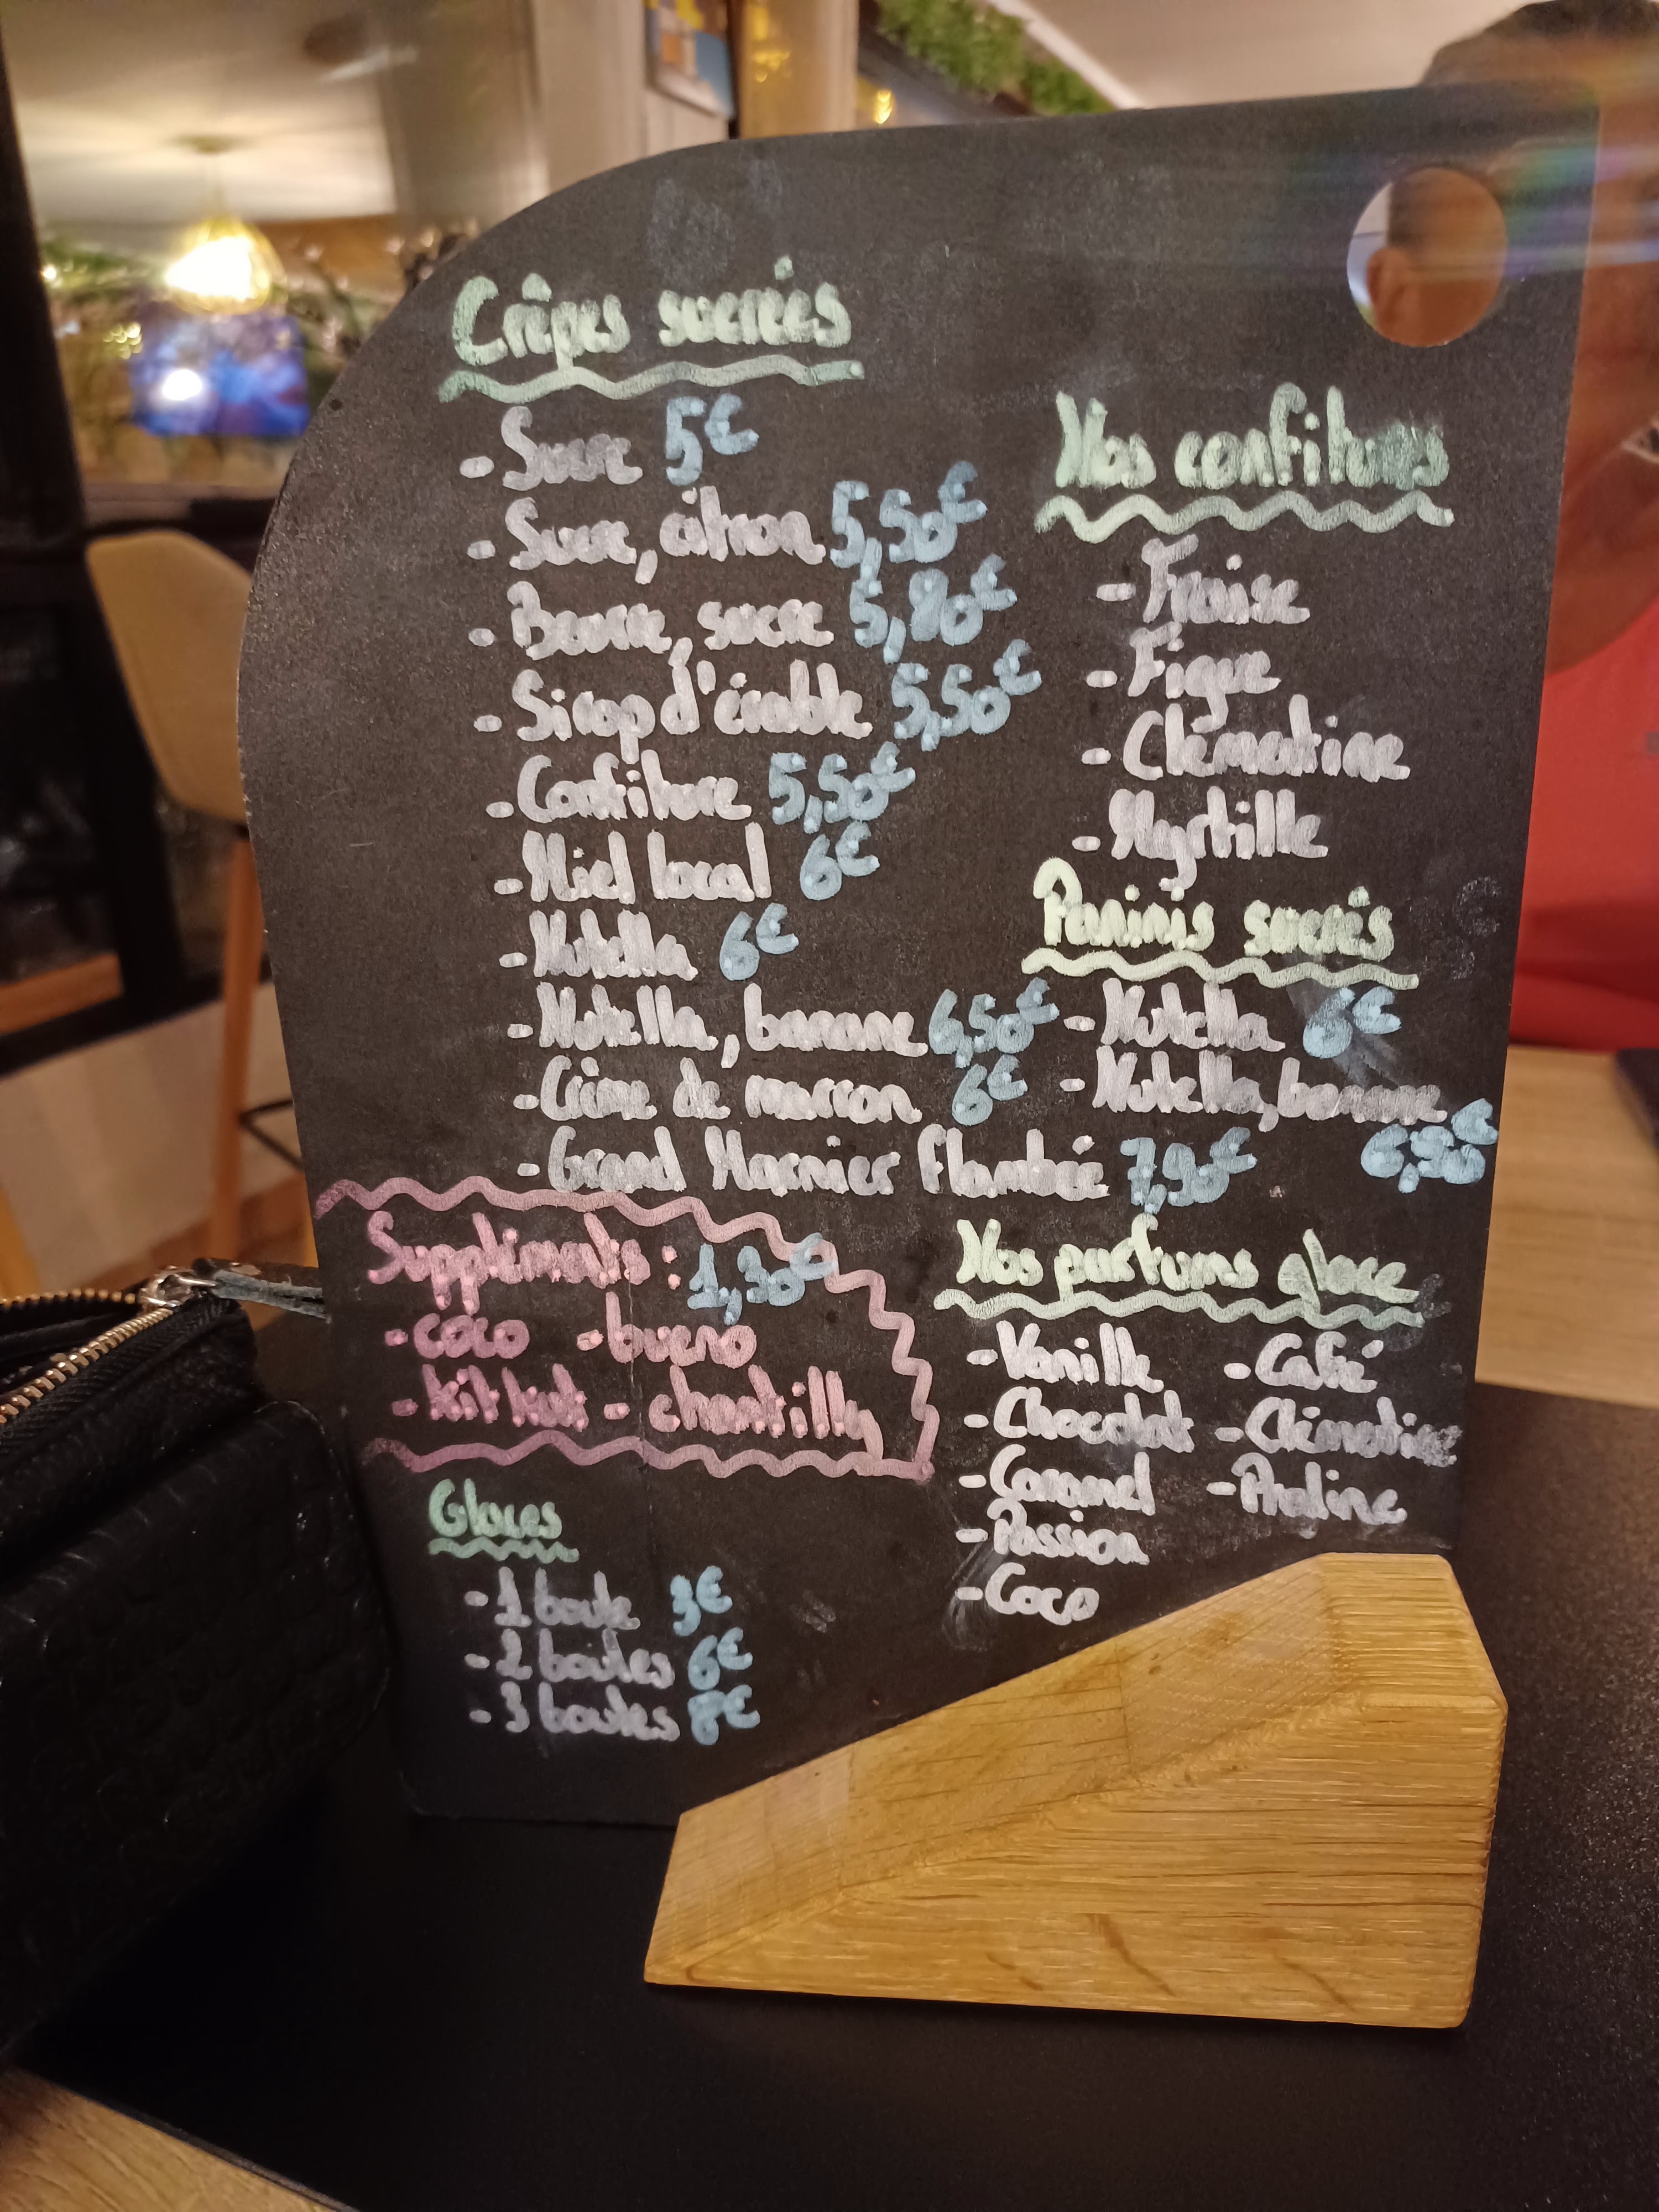 Crêpes sucrées
- Sucre 5€
- Sucre, citron 5,50€
- Beurre, sucre 5,80€
- Sirop d'érable 5,50€
- Confiture 5,50€
- Miel local 6€
- Nutella 6€
- Nutella, banane 6,50€
- Crème de marron 6€
- Grand Marnier Flambée 7,90€
Suppléments : 1,30€
- coco - bueno
- kit kat - chantilly
Glaces
- 1 boule 3€
- 2 boules 6€
- 3 boules 8€
Nos confitures
- Fraise
- Figue
- Clémentine
- Myrtille
Paninis sucrés
- Nutella 6€
- Nutella, banane
6,50€
Nos parfums glace
- Vanille - Café
- Chocolat - Clémentine
- Caramel - Praline
- Passion
- Coco